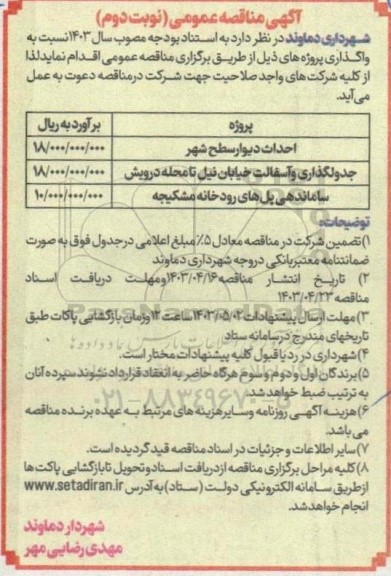 آگهی مناقصه عمومی (نوبت دوم)
شهرداری دماوند در نظر دارد به استناد بودجه مصوب سال ۱۴۰۳ نسبت به
واگذاری پروژه های ذیل از طریق برگزاری مناقصه عمومی اقدام نماید لذا
از کلیه شرکت های واجد صلاحیت جهت شرکت در مناقصه دعوت به عمل
می آید.
پروژه برآورد به ریال
احداث دیوار سطح شهر ۱۸/۰۰۰/۰۰۰/۰۰۰
جدولگذاری و آسفالت خیابان نیل تا محله درویش ۱۸/۰۰۰/۰۰۰/۰۰۰
ساماندهی پل های رودخانه مشکیجه ۱۰/۰۰۰/۰۰۰/۰۰۰
توضیحات:
۱) تضمین شرکت در مناقصه معادل ۵٪ مبلغ اعلامی در جدول فوق به صورت
ضمانتنامه معتبر بانکی در وجه شهرداری دماوند
۲) تاریخ انتشار مناقصه ۱۴۰۳/۰۴/۱۶ ومهلت دریافت اسناد
مناقصه ۱۴۰۳/۰۴/۲۳
۳) مهلت ارسال پیشنهادات ۱۴۰۳/۰۵/۰۲ ساعت ۱۲ وزمان بازگشایی پاکات طبق
تاریخهای مندرج در سامانه ستاد
۴) شهرداری در رد یا قبول کلیه پیشنهادات مختار است.
۵) برندگان اول و دوم و سوم هرگاه حاضر به انعقاد قرارداد نشوند سپرده آنان
به ترتیب ضبط خواهد شد.
۶) هزینه آگهی روزنامه و سایر هزینه های مرتبط به عهده برنده مناقصه
می باشد.
۷) سایر اطلاعات و جزئیات در اسناد مناقصه قید گردیده است.
۸) کلیه مراحل برگزاری مناقصه از دریافت اسناد و تحویل تا بازگشایی پاکت ها
از طریق سامانه الکترونیکی دولت (ستاد) به آدرس www.setadiran.ir
انجام خواهد شد.
شهردار دماوند
مهدی رضایی مهر